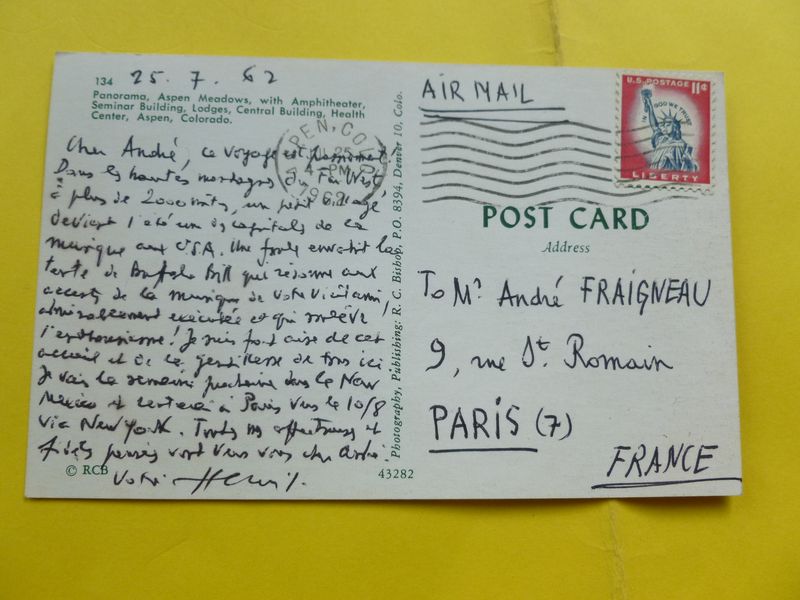 134 25.7.62
Panorama, Aspen Meadows, with Amphitheater,
Seminar Building, Lodges, Central Building, Health
Center, Aspen, Colorado.
Cher André, ce voyage est passionnant!
Dans les hautes montagnes du Far West,
à plus de 2000 mts, un petit village
devient l'été un des capitals de la
musique aux USA. Une foule envahit la
tente de Buffalo Bill qui résonne aux
accents de la musique de votre vieil ami,
admirablement exécutée et qui soulève
l'enthousiasme! Je suis fort aise de cet
accueil et de la gentillesse de tous ici
Je vais la semaine prochaine dans le New
Mexico et rentrerai à Paris vers le 10/8
via New York. Toutes mes affectueuses et
fidèles pensées vont vers vous cher André.
Votre Henri
© RCB
43282
Photography, Publishing: R. C. Bishop, P.O. 8394, Denver 10, Colo.
ASPEN, COLO.
JUL 25
4 PM
1962
AIR MAIL
U.S. POSTAGE 11¢
IN GOD WE TRUST
LIBERTY
POST CARD
Address
To Mr André FRAIGNEAU
9, rue St. Romain
PARIS (7)
FRANCE